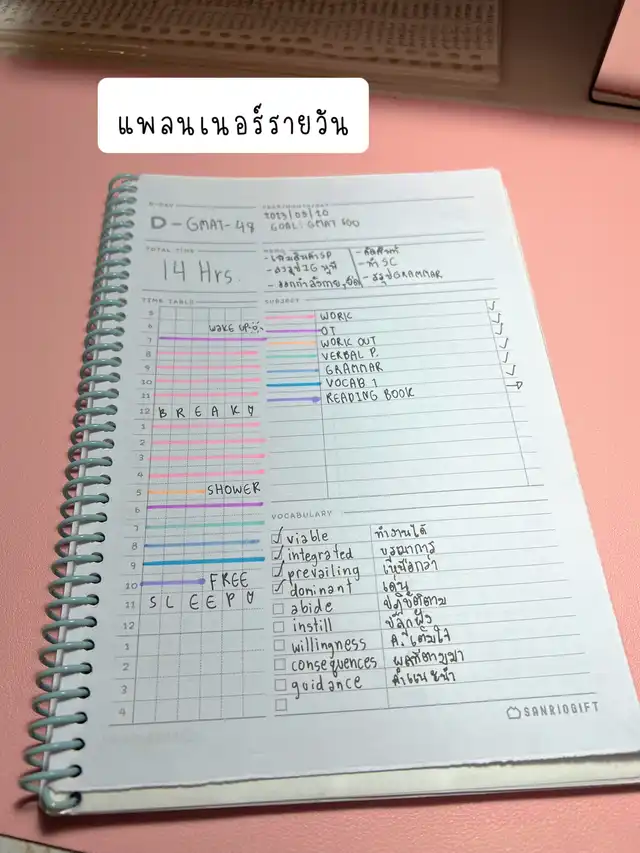 แพลนเนอร์รายวัน
D-DAY
D-GMAT-48
2023/09/20
GOAL: GMAT 600
TOTAL TIME
14 Hrs.
MEMO
- ออกกำลังกาย,
- คัดศัพท์
- ทำ SC
- สรุป GRAMMAR
TIME TABLE
5
6 WAKE UP
7
8
9
10
11
12 BREAK
1
2
3
4
5 SHOWER
6
7
8
9
10 FREE
11 SLEEP
12
1
2
3
4
SUBJECT
WORK
OT
WORK OUT
VERBAL P.
GRAMMAR
VOCAB 1
READING BOOK
VOCABULARY
viable ทำงานได้
integrated บูรณาการ
prevailing เหนือกว่า
dominant เด่น
abide ปฏิบัติตาม
instill ปลูกฝัง
willingness ค.เต็มใจ
consequences ผลที่ตามมา
guidance คำแนะนำ
SANRIOGIFT